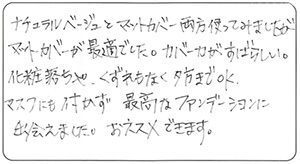 ナチュラルベージュとマットカバー両方使ってみましたが
マットカバーが最高でした。カバー力がすばらしい。
化粧落ちや、くずれもなく夕方までOK。
マスクにも付かず 最高なファンデーションに
出会えました。おススメできます。